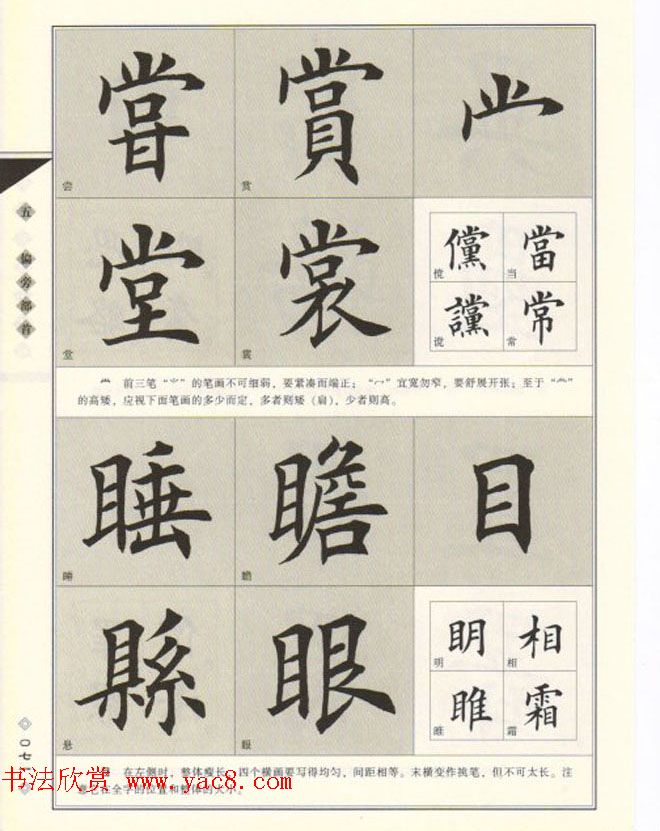 甞 賞 龸
尝 赏
堂 裳
堂 裳
儻 當
傥 当
讜 常
谠 常
五 偏旁部首
龸 前三笔“⺌”的笔画不可细弱，要紧凑而端正；“冖”宜宽勿窄，要舒展开张；至于“龸”
的高矮，应视下面笔画的多少而定，多者则矮（肩），少者则高。
睡 瞻 目
睡 瞻
縣 眼
悬 眼
眀 相
明 相
睢 霜
睢 霜
在左侧时，整体瘦长，四个横画要写得均匀，间距相等。末横变作挑笔，但不可太长。注
意它在全字的位置和整体的大小。
〇七
书法欣赏 www.yac8.com